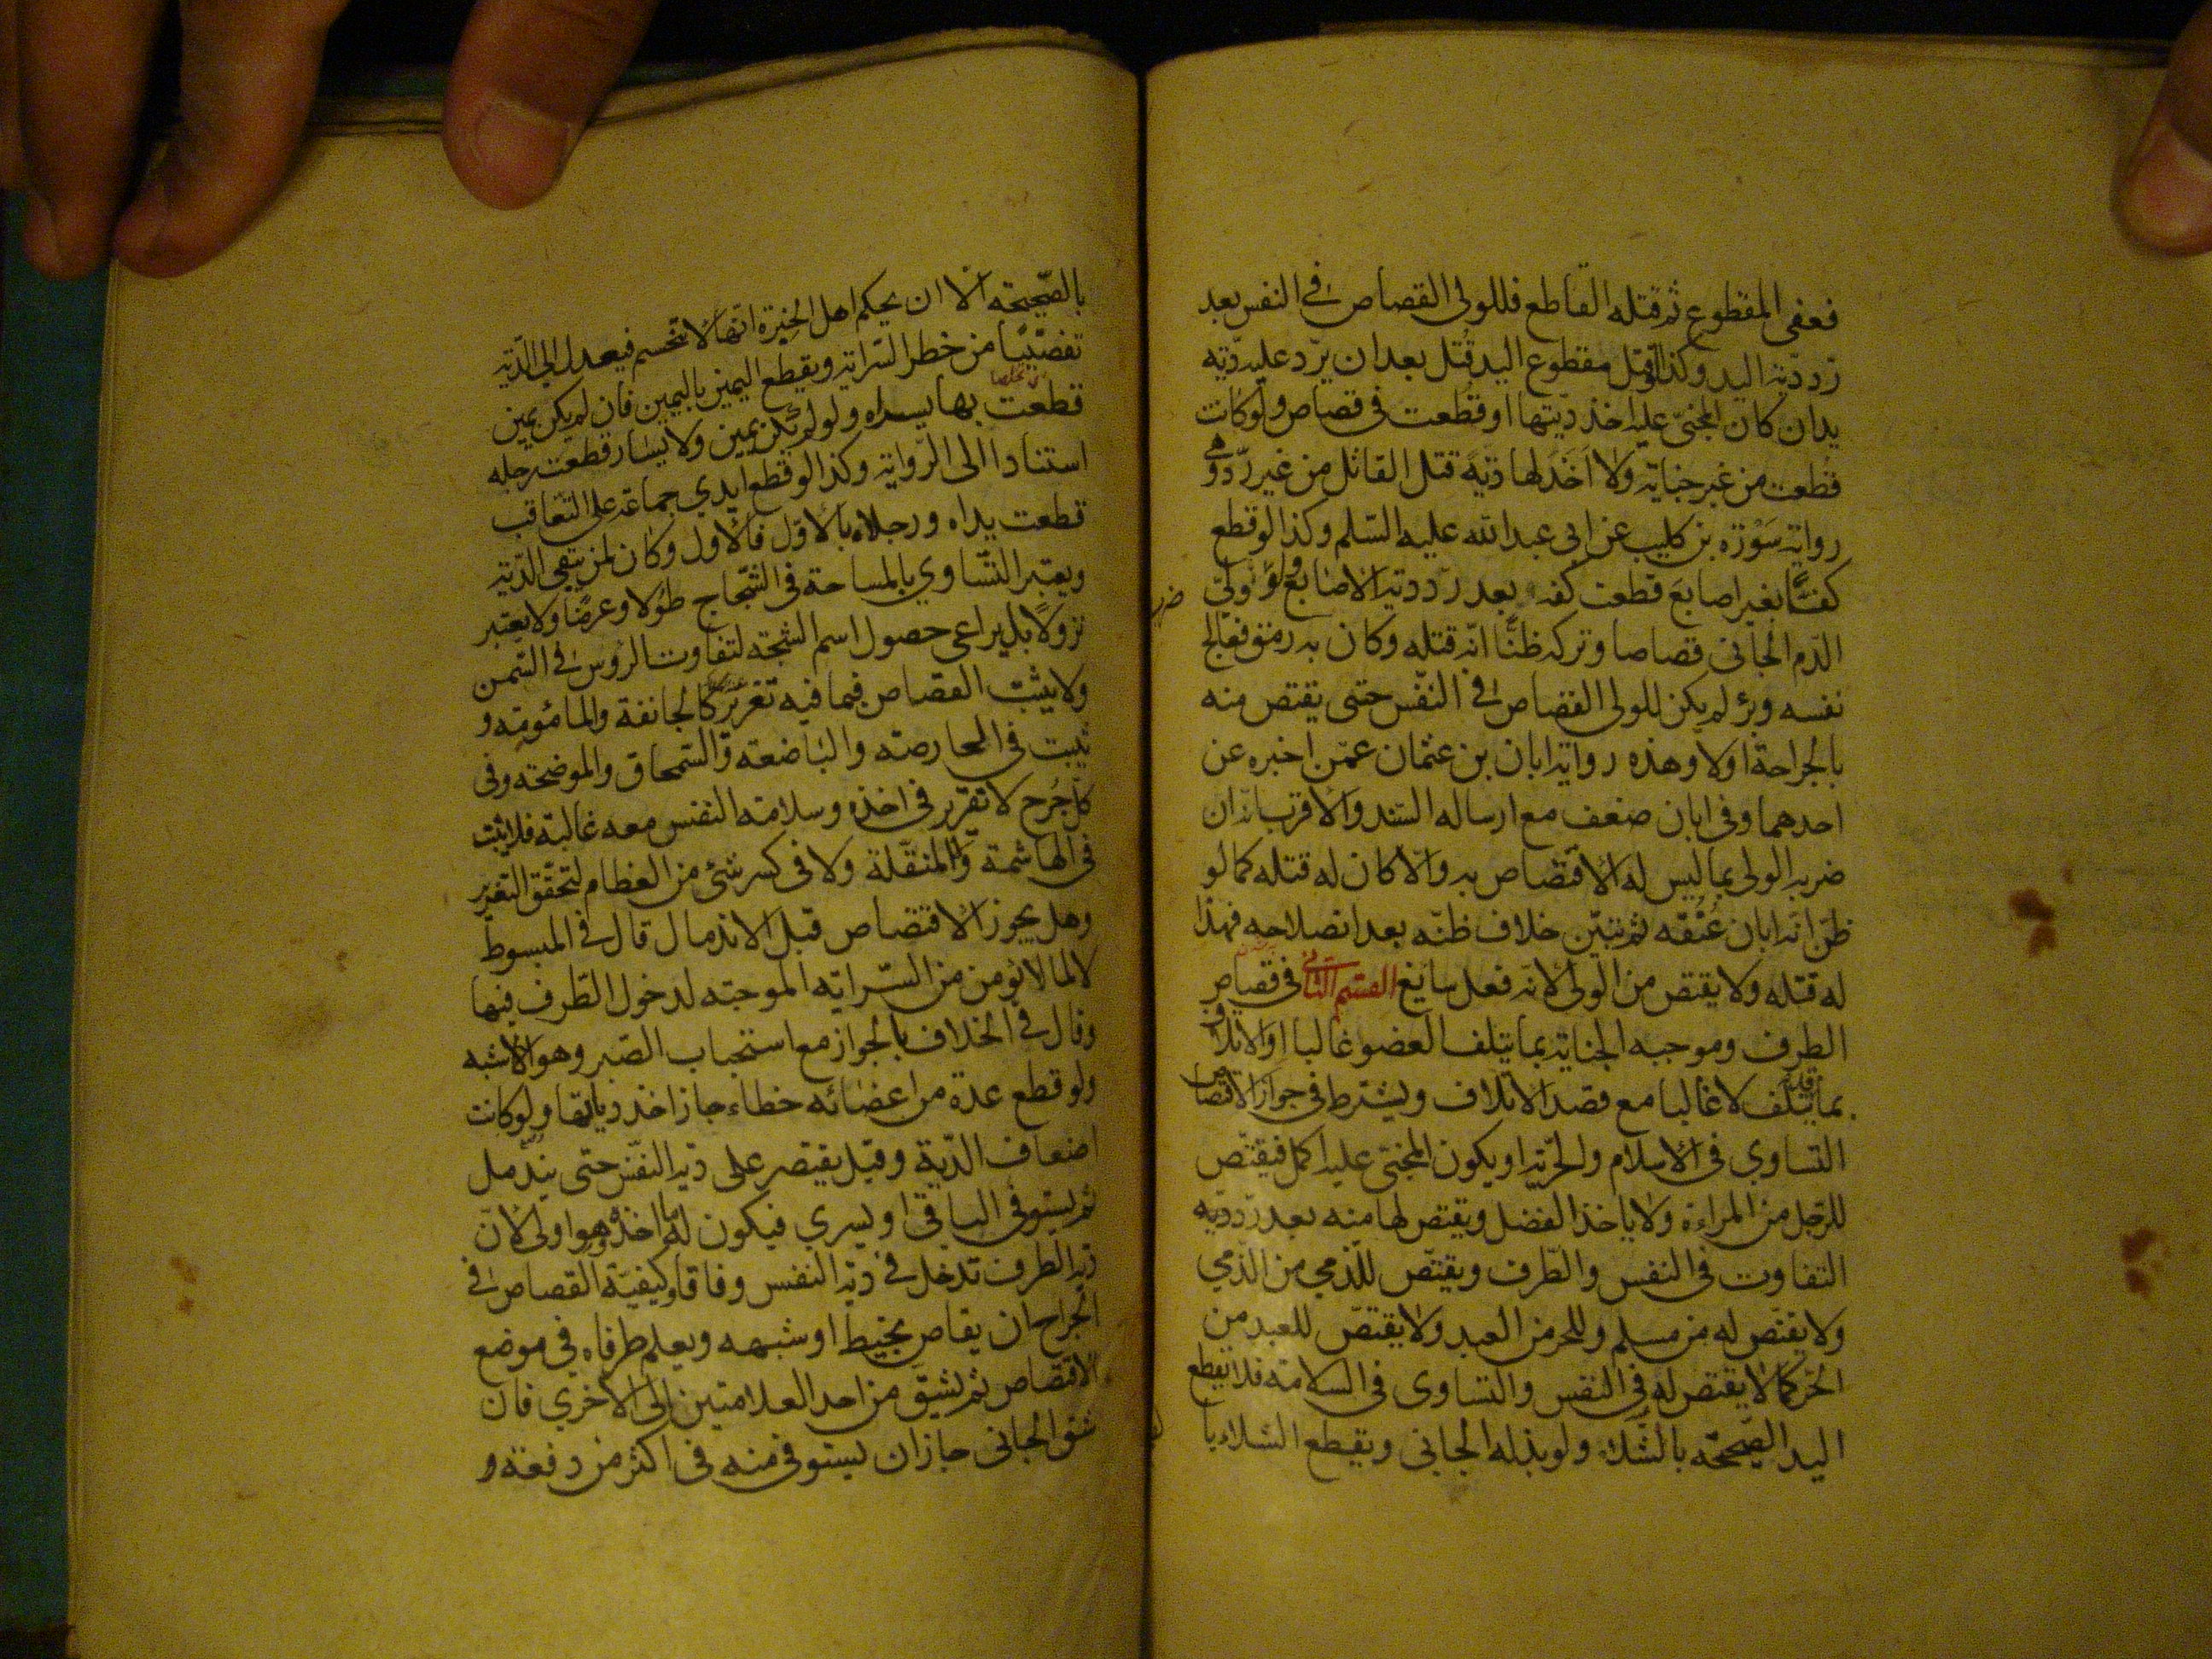 فعفى المقطوع ثم قتله القاطع فللولى القصاص فى النفس بعد
ردّ دية اليد وكذا لو قتل مقطوع اليد قُتل بعد ان يردّ عليه دية
يدان كان المجنىّ عليه اخذ ديتها او قطعت فى قصاص ولو كانت
قطعت من غير جناية ولا اخذ لها دية قتل القاتل من غير ردّ وهى
رواية سَوْرَة بن كليب عن ابى عبد الله عليه السّلم وكذا لو قطع
كفّا بغير اصابع قطعت كفه بعد ردّ دية الاصابع ولو ولىّ
الدّم الجانى قصاصا وتركه ظنّا انّه قتله وكان به رمق فعالج
نفسه وبرئ لم يكن للولى القصاص فى النفس حتى يقتص منه
بالجراحة اولا وهذه رواية ابان بن عثمان عمّن اخبره عن
احدهما وفى ابان ضعف مع ارساله السند والاقرب انّه ان
ضربه الولى بما ليس له الاقتصاص به والا كان له قتله كما لو
ظنّ انّه ابان عُنُقَه ثم تبيّن خلاف ظنّه بعد انصلاحه فهذا
له قتله ولا يقتص من الولى لانه فعل سايغ القسم الثانى فى قصاص
الطرف وموجبه الجناية بما يتلف العضو غالبا او الاتلاف
بما قد يتلف لا غالبا مع قصد الاتلاف ويشترط فى جواز الاقتصاص
التساوى فى الاسلام والحرّية او يكون المجنىّ عليه اكمل فيقتص
للرّجل من المراءة ولا ياخذ الفضل ويقتص لها منه بعد ردّ دية
التفاوت فى النفس والطّرف ويقتصّ للذّمى من الذّمي
ولا يقتصّ له من مسلم وللحر من العبد ولا يقتصّ للعبد من
الحرّ كما لا يقتص له فى النفس والتساوى فى السلامة فلا يقطع
اليد الصّحيحة بالشّلاء ولو بذله الجانى ويقطع الشلاء با
بالصّحيحة الّا ان يحكم اهل الخبرة انّها لا تنحسم فيعدل الى الدّية
تفصّيًا من خطر السّراية ويقطع اليمين باليمين فان لم يكن يمين
قطعت بها يسراه ولو لم يكن يمين ولا يسار قطعت رجله
استنادا الى الرّواية وكذا لو قطع ايدي جماعة على التّعاقب
قطعت يداه ورجلاه بالاوّل فالاول وكان لمن يبقى الدّية
ويعتبر التّساوي بالمساحة فى الشّجاج طولا وعرضا ولا يعتبر
نزولًا بل يراعى حصول اسم الشجة لتفاوت الروس فى السّمن
ولا يثبت القصاص فيما فيه تغرير كالجائفة والمامومة و
يثبت فى الحارصة والباضعة والسّمحاق والموضحة وفى
كلّ جُرح لا تغرير فى اخذه وسلامة النفس معه غالبة فلا يثبت
فى الهاشمة والمنقّلة ولا فى كسر شئ من العظام لتحقّق التغرير
وهل يجوز الاقتصاص قبل الاندمال قال فى المبسوط
لا لما لا يؤمن من السّراية الموجبة لدخول الطّرف فيها
وقال فى الخلاف بالجواز مع استحباب الصّبر وهو الاشبه
ولو قطع عدة من اعضائه خطاء جاز اخذ دياتها ولو كانت
اضعاف الدّية وقيل يقتصر على دية النفس حتى يندمل
ثم يستوفى الباقى او يسري فيكون له ما اخذه وهو اولى لانّ
دية الطرف تدخل فى دية النفس وفاقا وكيفيّة القصاص فى
الجراح ان يقاس بخيط او شبهه ويعلم طرفاه فى موضع
الاقتصاص ثم يشقّ من احد العلامتين الى الاخري فان
شق الجانى جاز ان يستوفى منه فى اكثر من دفعة و